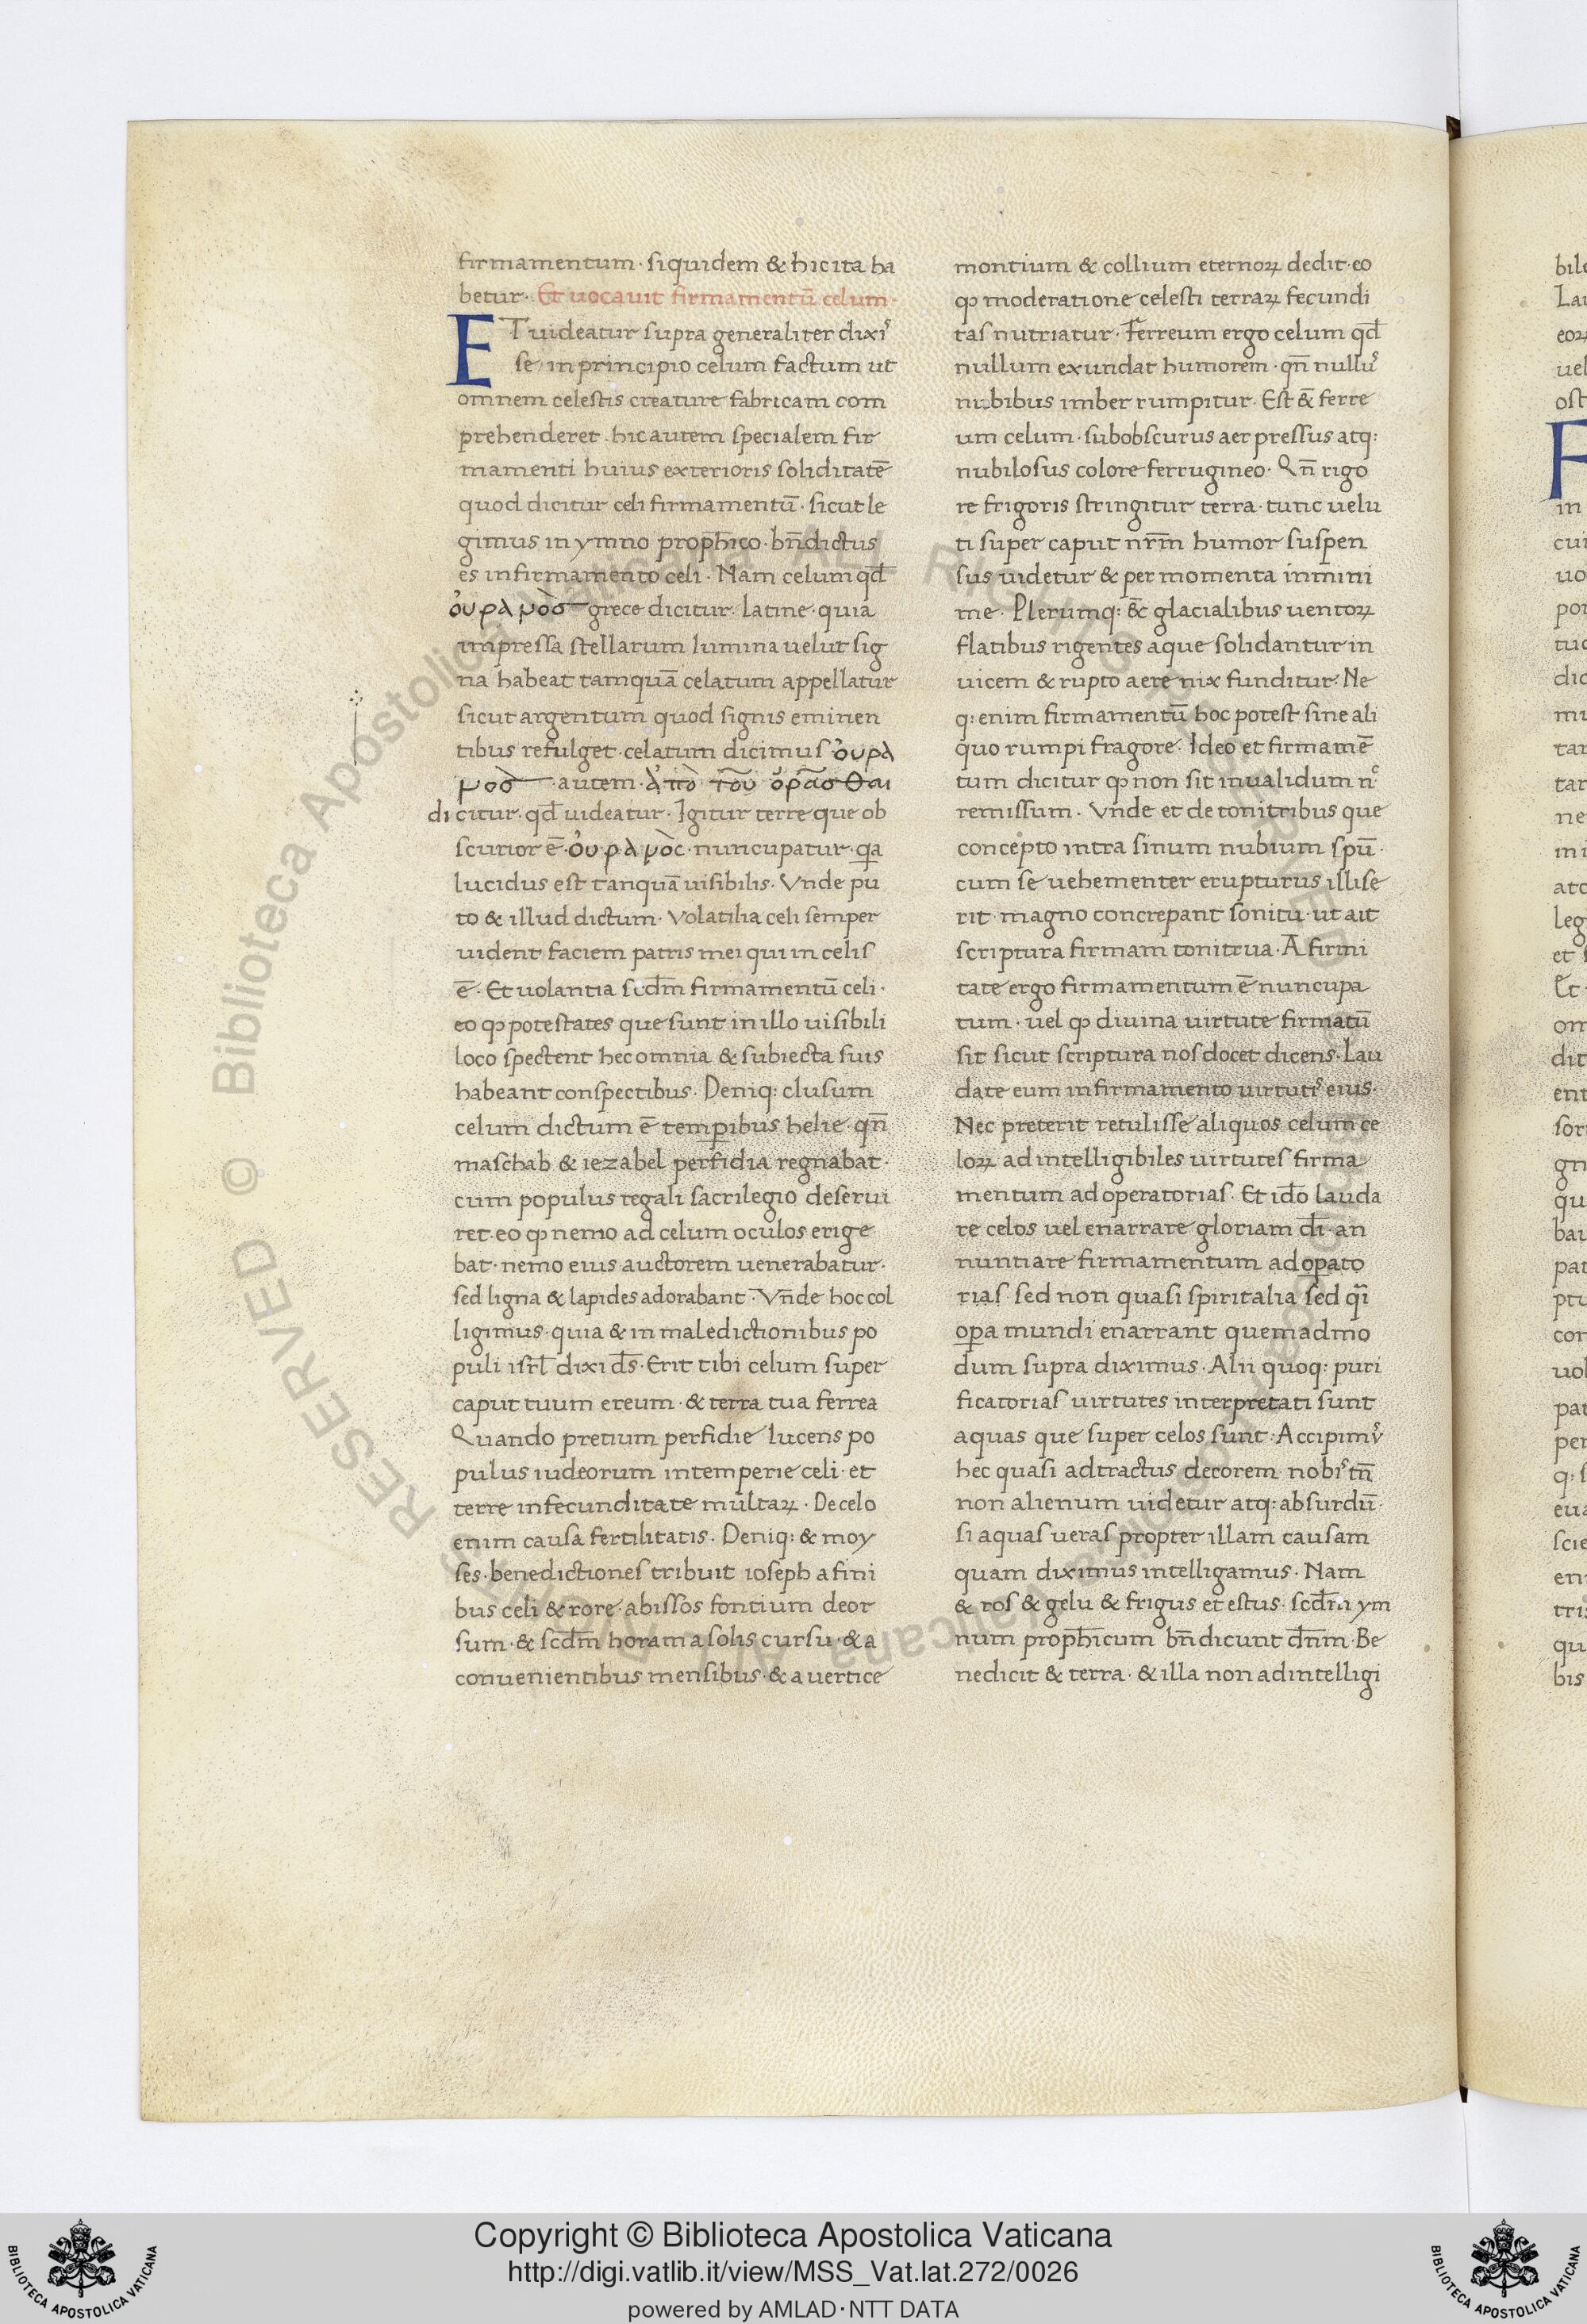 firmamentum · siquidem & hic ita ha
betur · Et uocauit firmamentū celum ·
ET uideatur supra generaliter dixiˢ
se in principio celum factum ut
omnem celestis creature fabricam com
prehenderet · hic autem specialem fir
mamenti huius exterioris soliditatē
quod dicitur celi firmamentū · sicut le
gimus in ymno proph̄ico · bn̄dictus
es in firmamento celi · Nam celum qd̄
ὀυρὰμὸσ grece dicitur · Latine · quia
impressa stellarum lumina uelut sig
na habeat tamquā celatum appellatur
sicut argentum quod signis eminen
tibus refulget · celatum dicimus ὀυρὰ
μοσ̀ autem ἀπὸ τοῦ ὁρᾶσθαι
dicitur · qd̄ uideatur · Igitur terre que ob
scurior ē · ὀυρὰμὸς · nuncupatur · qa
lucidus est tanquā uisibilis · Vnde pu
to & illud dictum · Volatilia celi semper
uident faciem patris mei qui in celis
ē · Et uolantia scd̄m firmamentū celi ·
eo ꝙ potestates que sunt in illo uisibili
loco spectent hec omnia & subiecta suis
habeant conspectibus · Deniq: clusum
celum dictum ē temꝑibus helie · qn̄
maschab & iezabel perfidia regnabat ·
cum populus regali sacrilegio deserui
ret · eo ꝙ nemo ad celum oculos erige
bat · nemo eius auctorem uenerabatur ·
sed ligna & lapides adorabant · Vn̄de hoc col
ligimus · quia & in maledictionibus po
puli isrl̄ dixi ds̄ · Erit tibi celum super
caput tuum ereum · & terra tua ferrea
Quando pretium perfidie lucens po
pulus iudeorum intemperie celi · et
terre infecunditate multaꝝ · De celo
enim causa fertilitatis · Deniq: & moy
ses · benedictiones tribuit ioseph a fini
bus celi & rore · abissos fontium deor
sum · & scd̄m horam a solis cursu · & a
conuenientibus mensibus · & a uertice
montium & collium eternoꝝ dedit · eo
ꝙ moderatione celesti terraꝝ fecundi
tas nutriatur · Ferreum ergo celum qd̄
nullum exundat humorem · qn̄ nullıˢ
nubibus imber rumpitur · Est & ferre
um celum · subobscurus aer pressus atq:
nubilosus colore ferrugineo · Qn̄ rigo
re frigoris stringitur terra · tunc uelu
ti super caput nr̄m humor suspen
sus uidetur & per momenta inmini
me · Plerumq: & glacialibus uentoꝝ
flatibus rigentes aque solidantur in
uicem & rupto aere nix funditur · Ne
q: enim firmamentū hoc potest sine ali
quo rumpi fragore · Ideo et firmamē
tum dicitur ꝙ non sit inualidum nᶜ
remissum · Vn̄de et de tonitribus que
concepto intra sinum nubium spū ·
cum se uehementer erupturus illise
rit · magno concrepant sonitu · ut ait
scriptura firmam tonitrua · A firmi
tate ergo firmamentum ē nuncupa
tum · uel ꝙ diuina uirtute firmatū
sit sicut scriptura nos docet dicens · Lau
date eum in firmamento uirtutiˢ eius ·
Nec preterit retulisse aliquos celum ce
loꝝ ad intelligibiles uirtutes firma
mentum ad operatorias · Et id̄o lauda
re celos uel enarrare gloriam dī · an
nuntiare firmamentum ad oꝑato
rias sed non quasi spiritalia sed qⁱ
oꝑa mundi enarrant quemadmo
dum supra diximus · Alii quoq: puri
ficatorias uirtutes interpretati sunt
aquas que super celos sunt · Accipimˢ
hec quasi adtractus decorem · nobiˢ tn̄
non alienum uidetur atq: absurdū ·
si aquas ueras propter illam causam
quam diximus intelligamus · Nam
& ros & gelu & frigus et estus · scd̄m ym
num proph̄icum bn̄dicunt dn̄m · Be
nedicit & terra · & illa non ad intelligi
Copyright © Biblioteca Apostolica Vaticana
http://digi.vatlib.it/view/MSS_Vat.lat.272/0026
powered by AMLAD·NTT DATA